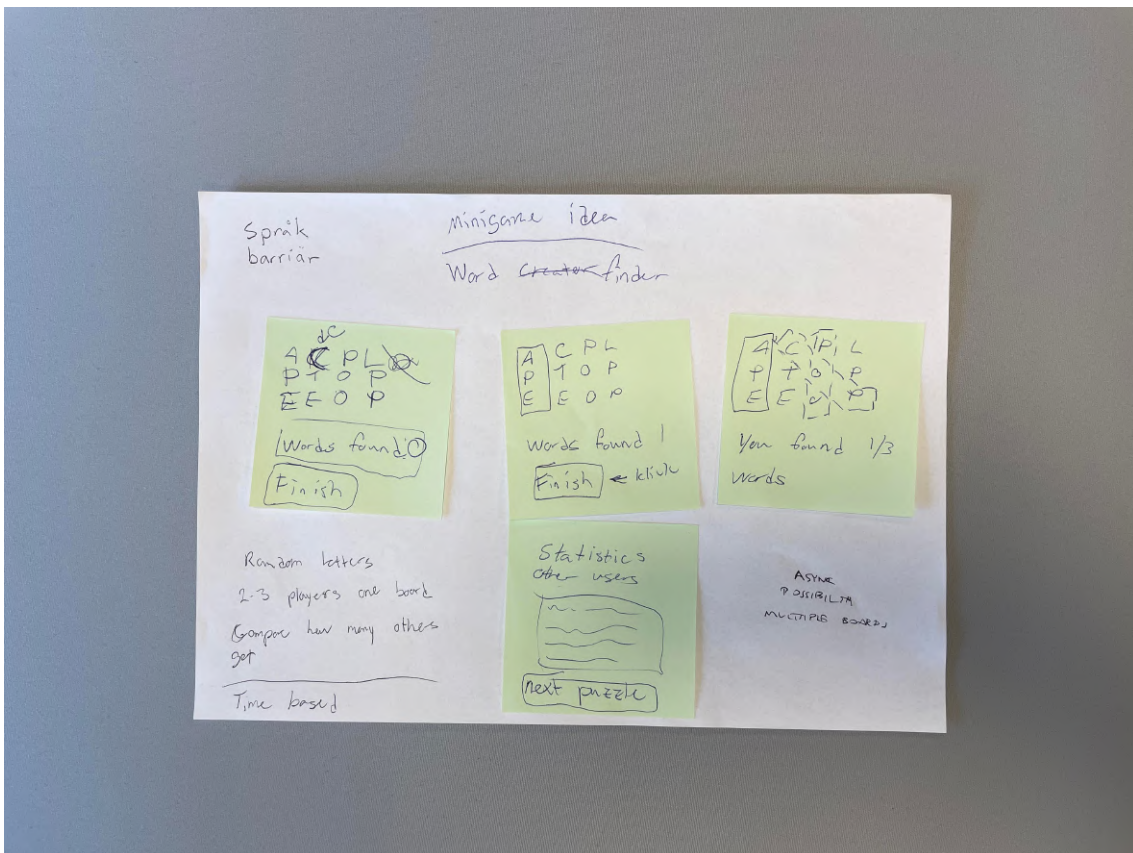 Språk
barriär
Minigame idea
Word Creator finder
C
A C P L
P T O P
E E O P
Words found: 0
Finish
A C P L
P T O P
E E O P
Words found 1
Finish ← klick
A C P L
P T O P
E E O P
You found 1/3
words
Random letters
2-3 players one board
Compare how many others
get
Time based
Statistics
other users
next puzzle
ASYNC
POSSIBILTY
MULTIPLE BOARDS